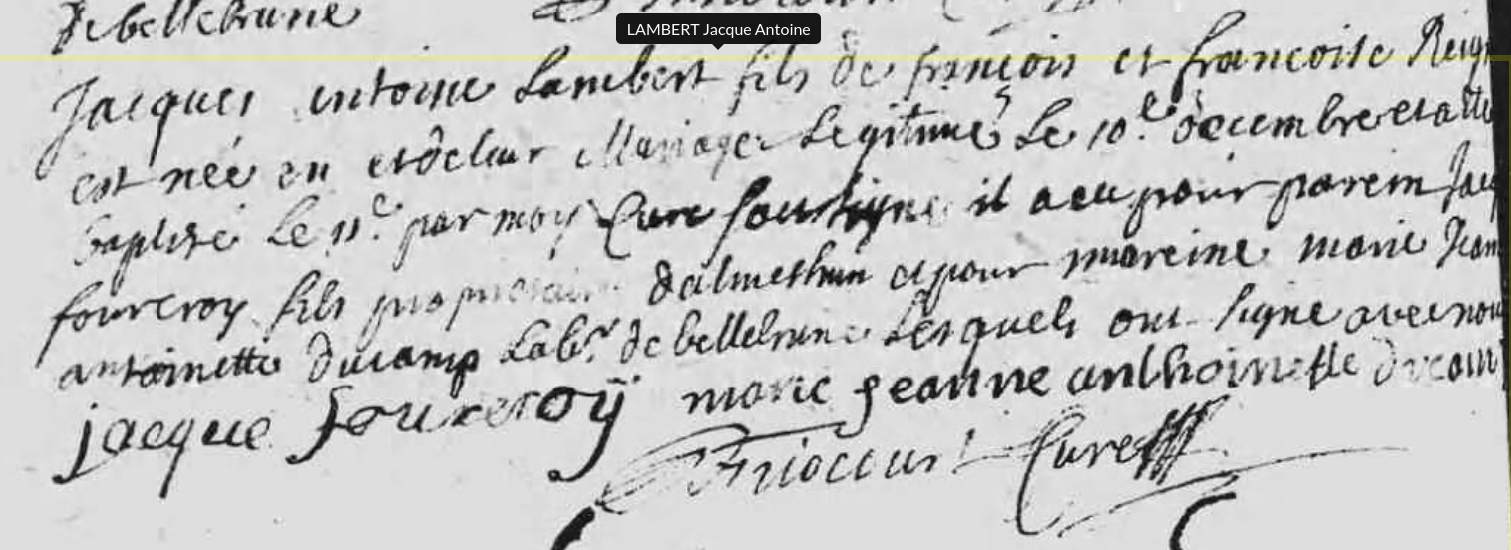 de bellebrune
LAMBERT Jacque Antoine
Jacques antoine Lambert fils de françois et francoise
est née en et de leur Mariage Legitime Le 10.e decembre et a
baptisé Le 11.e par moy Curé soussigne il a eu pour parein
fourcroy fils propriétaire dalmethun et pour mareine marie
antoinette ducamp Labr. de bellebrune Lesquels ont signe avec
jacque fourcroÿ marie jeanne anthoinette
Curé